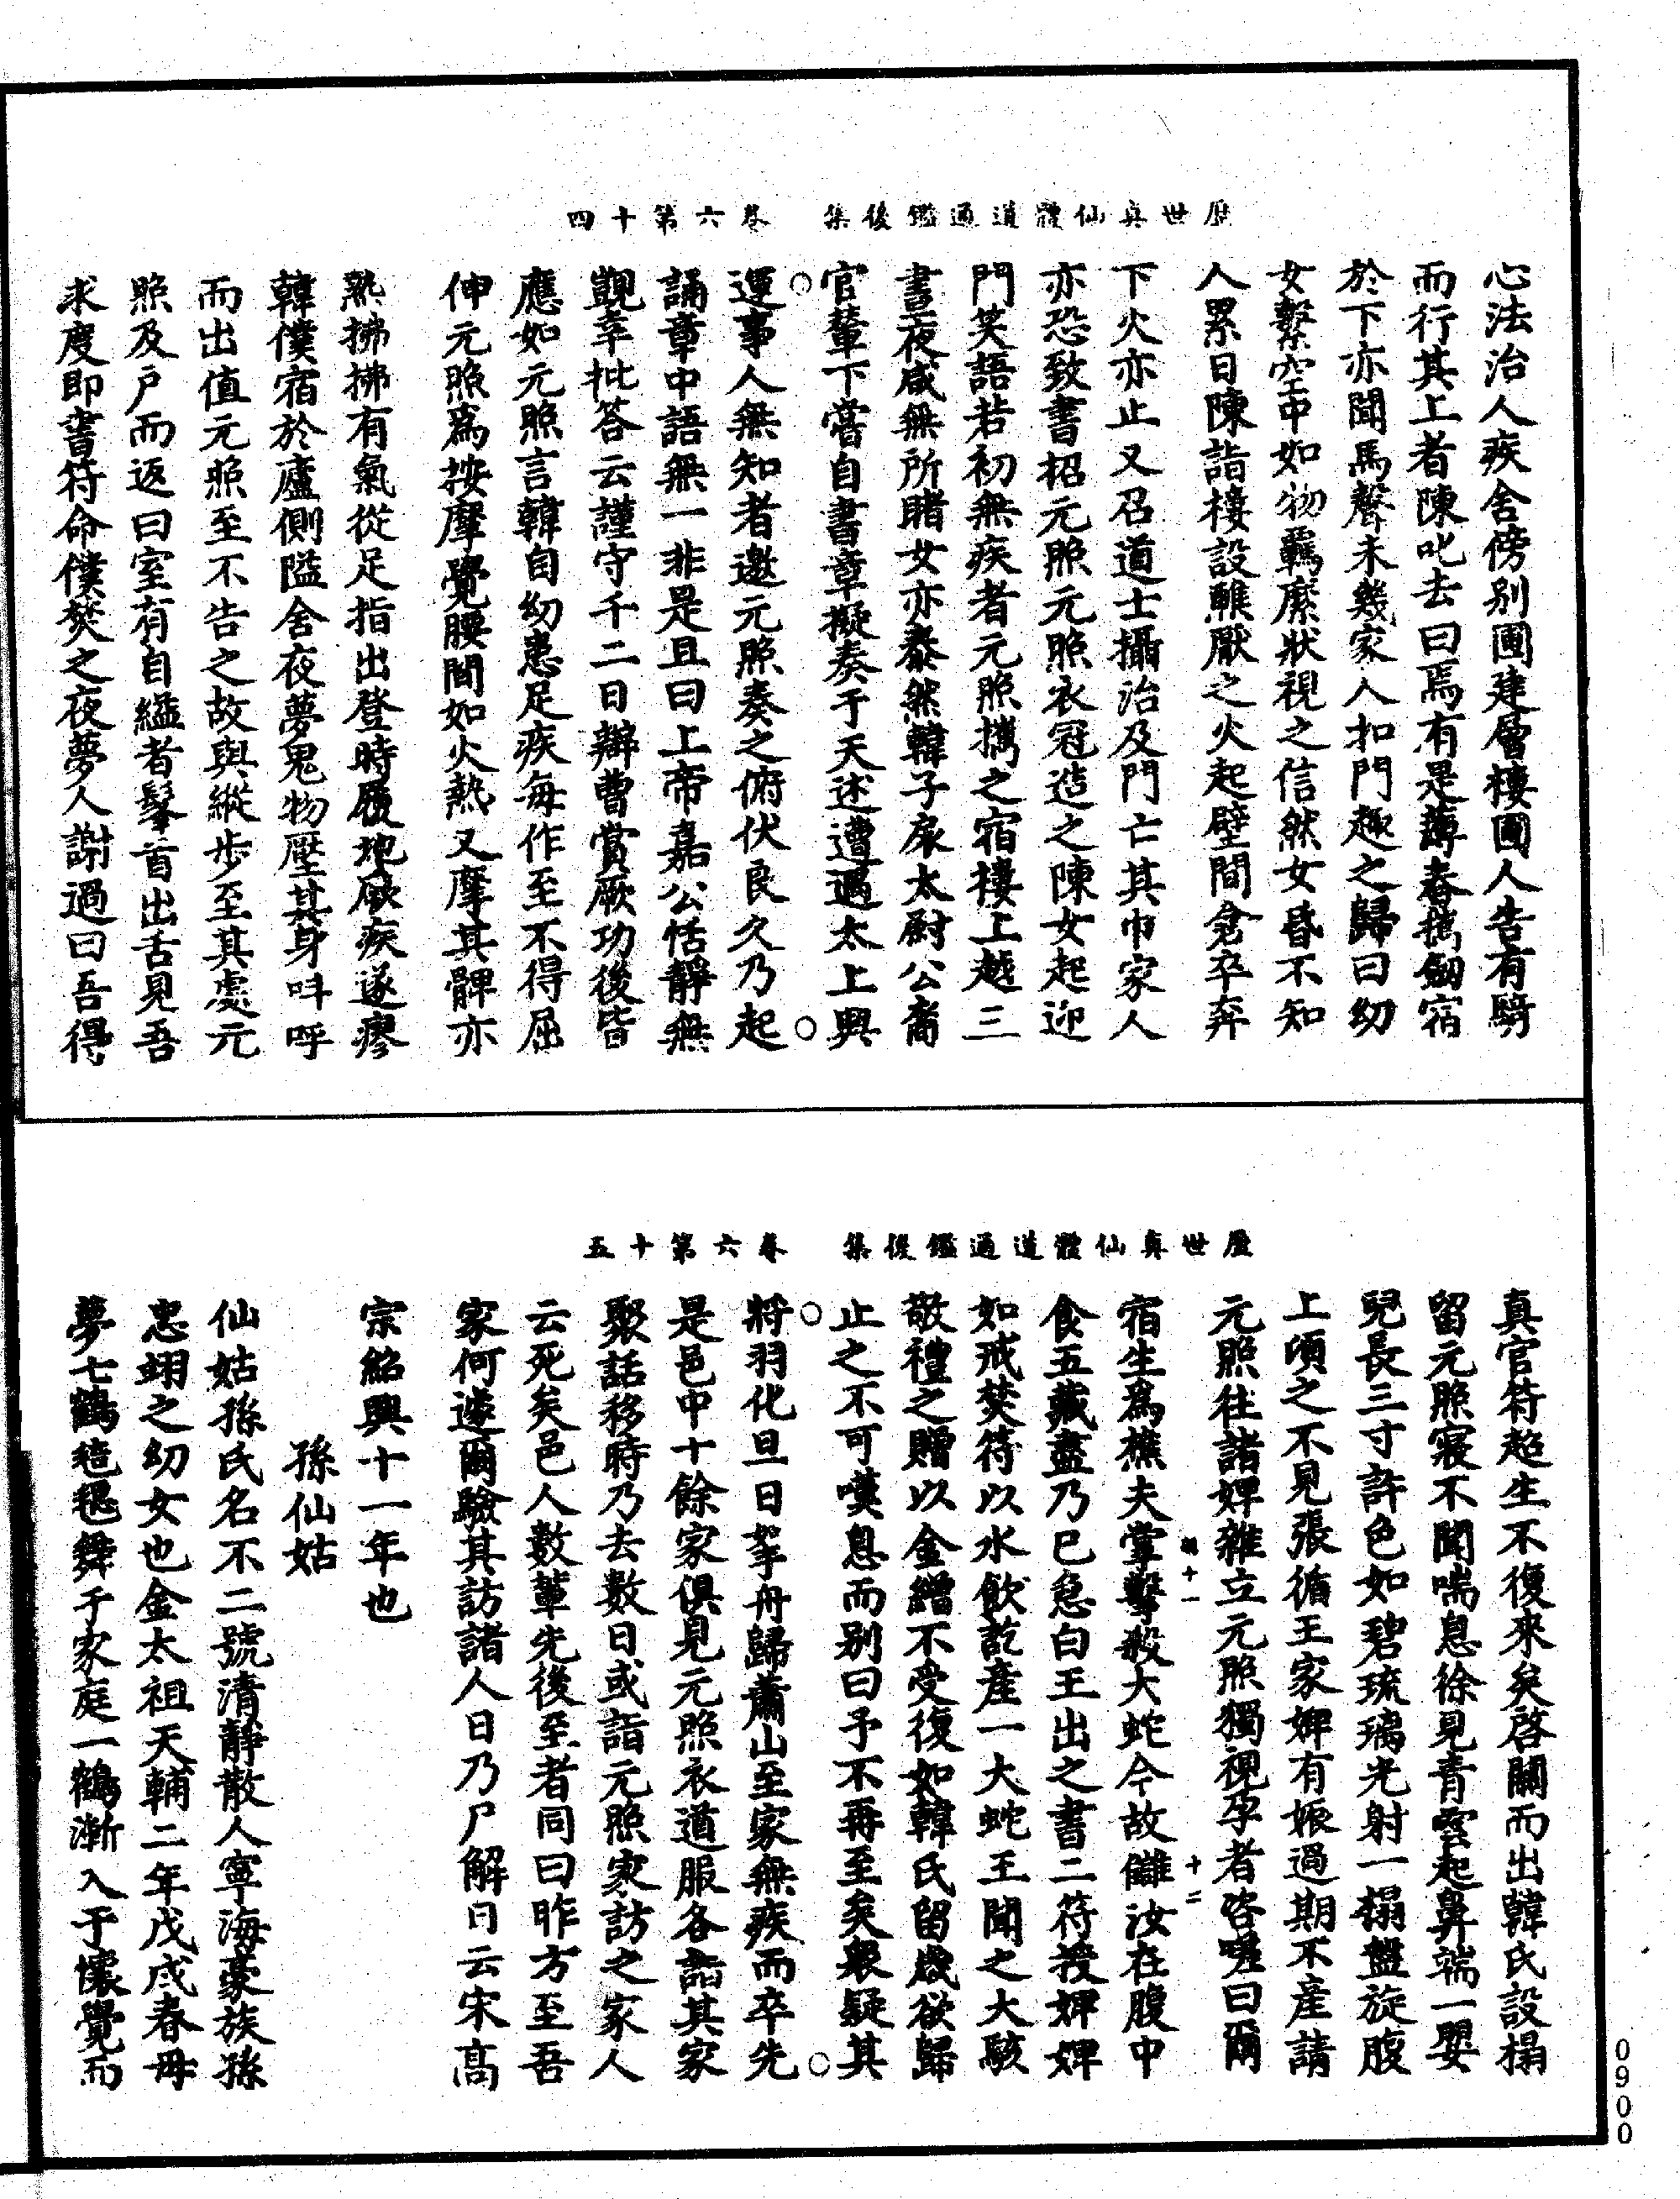 歷世真仙體道通鑑後集 卷六第十四
心法治人疾舍傍别圃建層樓圃人告有騎
而行其上者陳叱去曰焉有是薄暮攜劒宿
於下亦聞馬聲未幾家人扣門趣之歸曰幼
女繫空中如物羈縻狀視之信然女昏不知
人累日陳詣樓設醮厭之火起壁間倉卒奔
下火亦止又召道士攝治及門亡其巾家人
亦恐致書招元照元照衣冠造之陳女起迎
門笑語若初無疾者元照攜之宿樓上越三
晝夜咸無所睹女亦泰然韓子扆太尉公裔
官輦下嘗自書章擬奏于天述遭遇太上興
運事人無知者邀元照奏之俯伏良久乃起
誦章中語無一非是且曰上帝嘉公恬靜無
覬幸批答云謹守千二日辦曹賞厥功後皆
應如元照言韓自幼患足疾每作至不得屈
伸元照爲按摩覺腰間如火熱又摩其髀亦
熱拂拂有氣從足指出登時履地厥疾遂瘳
韓僕宿於廬側隘舍夜夢鬼物壓其身叫呼
而出值元照至不告之故與縱步至其處元
照及戶而返曰室有自縊者鬅首出舌見吾
求度即書符命僕焚之夜夢人謝過曰吾得
歷世真仙體道通鑑後集 卷六第十五
真官符超生不復來矣啓關而出韓氏設榻
留元照寢不聞喘息徐見青雲起鼻端一嬰
兒長三寸許色如碧琉璃光射一榻盤旋腹
上頃之不見張循王家婢有娠過期不產請
元照往諸婢雜立元照獨視孕者咨嗟曰爾
宿生爲樵夫掌擊殺大蛇今故讎汝在腹中
食五藏盡乃已急白王出之書二符授婢婢
如戒焚符以水飲訖產一大蛇王聞之大駭
敬禮之贈以金繒不受復如韓氏留歲欲歸
止之不可嘆息而别曰予不再至矣衆疑其
將羽化旦日拏舟歸蕭山至家無疾而卒先
是邑中十餘家俱見元照衣道服各詣其家
聚話移時乃去數日或詣元照家訪之家人
云死矣邑人數輩先後至者同曰昨方至吾
家何遽爾驗其訪諸人日乃尸解日云宋高
宗紹興十一年也
孫仙姑
仙姑孫氏名不二號清靜散人寧海豪族孫
忠翊之幼女也金太祖天輔二年戊戌春母
夢七鶴𣯶𣯶舞于家庭一鶴漸入于懷覺而
十一
十二
0900